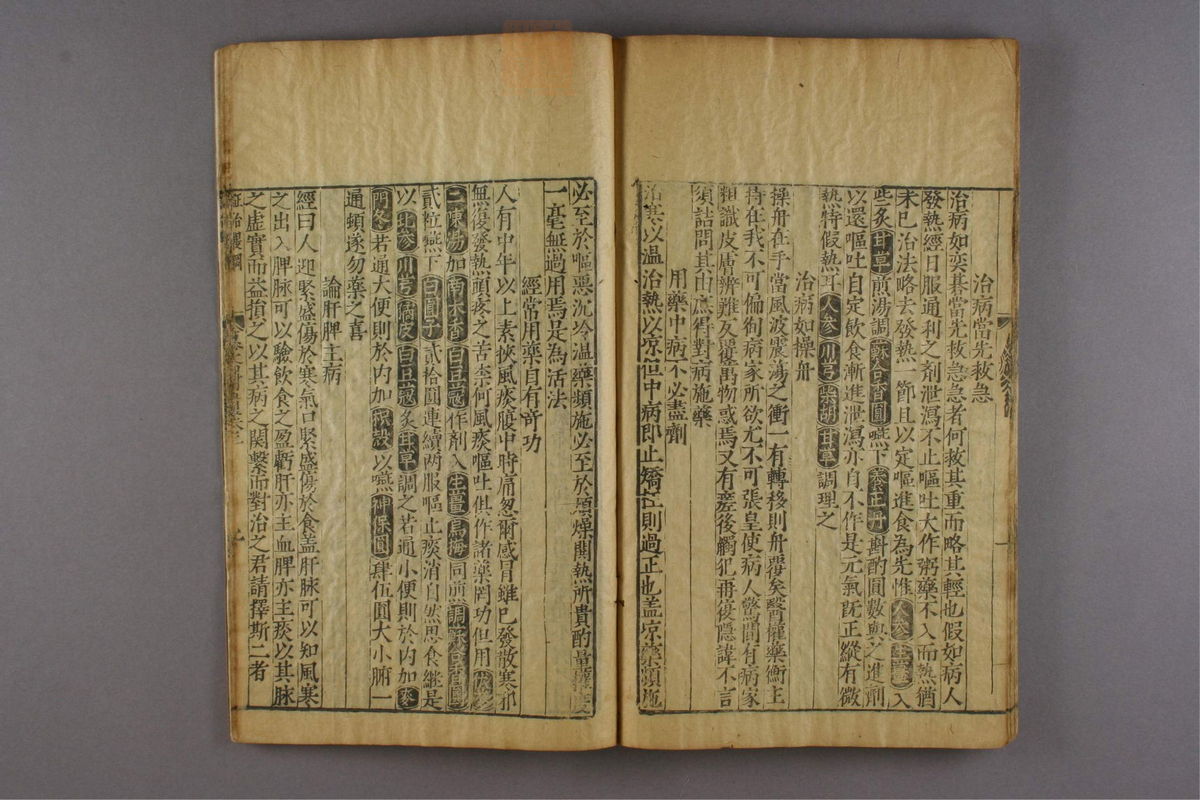 治病當先救急
治病如奕碁當先救急急者何救其重而略其輕也假如病人
發熱經日服通利之劑泄瀉不止嘔吐大作粥藥不入而熱猶
未已治法略去發熱一節且以定嘔進食為先惟人參生薑入
些炙甘草煎湯調蘇合香圓嚥下養正丹斟酌圓數與之進劑
以還嘔吐自定飲食漸進泄瀉亦自不作是元氣既正縱有微
熱特假熱耳人參川芎柴胡甘草調理之
治病如操舟
操舟在手當風波震蕩之衝一有轉移則舟覆矣醫權藥衡主
持在我不可偏徇病家所欲尤不可張皇使病人驚間有病家
粗識皮膚辨難反覆萬物惑焉又有差後觸犯再復隱諱不言
須詰問其由庶得對病施藥
用藥中病不必盡劑
治寒以温治熱以凉但中病即止矯枉則過正也盖凉藥頻施
必至於嘔惡沉冷温藥頻施必至於煩燥悶熱所貴酌量權度
一毫無過用焉是為活法
經常用藥自有奇功
人有中年以上素挾風痰腹中時痛忽爾感冒雖已發散寒邪
無復發熱頭疼之苦柰何風痰嘔吐俱作諸藥罔功但用
二陳湯加南木香白豆蔻作劑入生薑烏梅同煎調蘇合香圓
貳粒嚥下白圓子貳拾圓連續两服嘔止痰消自然思食繼是
以人參川芎橘皮白豆蔻炙甘草調之若通小便則於内加麥
門冬若通大便則於内加枳殼以嚥神保圓肆伍圓大小腑一
通頓遂勿藥之喜
論肝脾主病
經曰人迎緊盛傷於寒氣口緊盛傷於食盖肝脉可以知風寒
之出入脾脉可以驗飲食之盈虧肝亦主血脾亦主痰以其脉
之虛實而益損之以其病之関繫而對治之君請擇斯二者